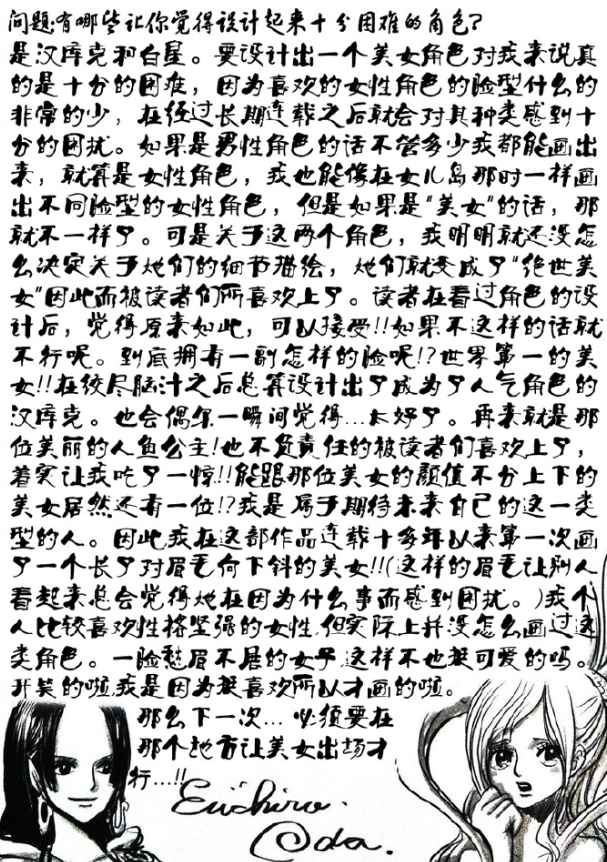 问题:有哪些让你觉得设计起来十分困难的角色?
是汉库克和白星。要设计出一个美女角色对我来说真
的是十分的困难，因为喜欢的女性角色的脸型什么的
非常的少，在经过长期连载之后就会对其种类感到十
分的困扰。如果是男性角色的话不管多少我都能画出
来，就算是女性角色，我也能像在女儿岛那时一样画
出不同脸型的女性角色，但是如果是"美女"的话，那
就不一样了。可是关于这两个角色，我明明就还没怎
么决定关于她们的细节描绘，她们就变成了"绝世美
女"因此而被读者们所喜欢上了。读者在看过角色的设
计后，觉得原来如此，可以接受!!如果不这样的话就
不行呢。到底拥有一副怎样的脸呢!?世界第一的美
女!!在绞尽脑汁之后总算设计出了成为了人气角色的
汉库克。也会偶尔一瞬间觉得...太好了。再来就是那
位美丽的人鱼公主!也不负責任的被读者们喜欢上了，
着实让我吃了一惊!!能跟那位美女的颜值不分上下的
美女居然还有一位!?我是属于期待未来自己的这一类
型的人。因此我在这部作品连载十多年以来第一次画
了一个长了对眉毛向下斜的美女!!(这样的眉毛让别人
看起来总会觉得她在因为什么事而感到困扰。)我个
人比较喜欢性格坚强的女性,但实际上并没怎么画过这
类角色。一脸愁眉不展的女子,这样不也挺可爱的吗。
开笑的啦,我是因为挺喜欢所以才画的啦。
那么下一次... 必须要在
那个地方让美女出场才
行...!!
Eiichiro.
Oda.